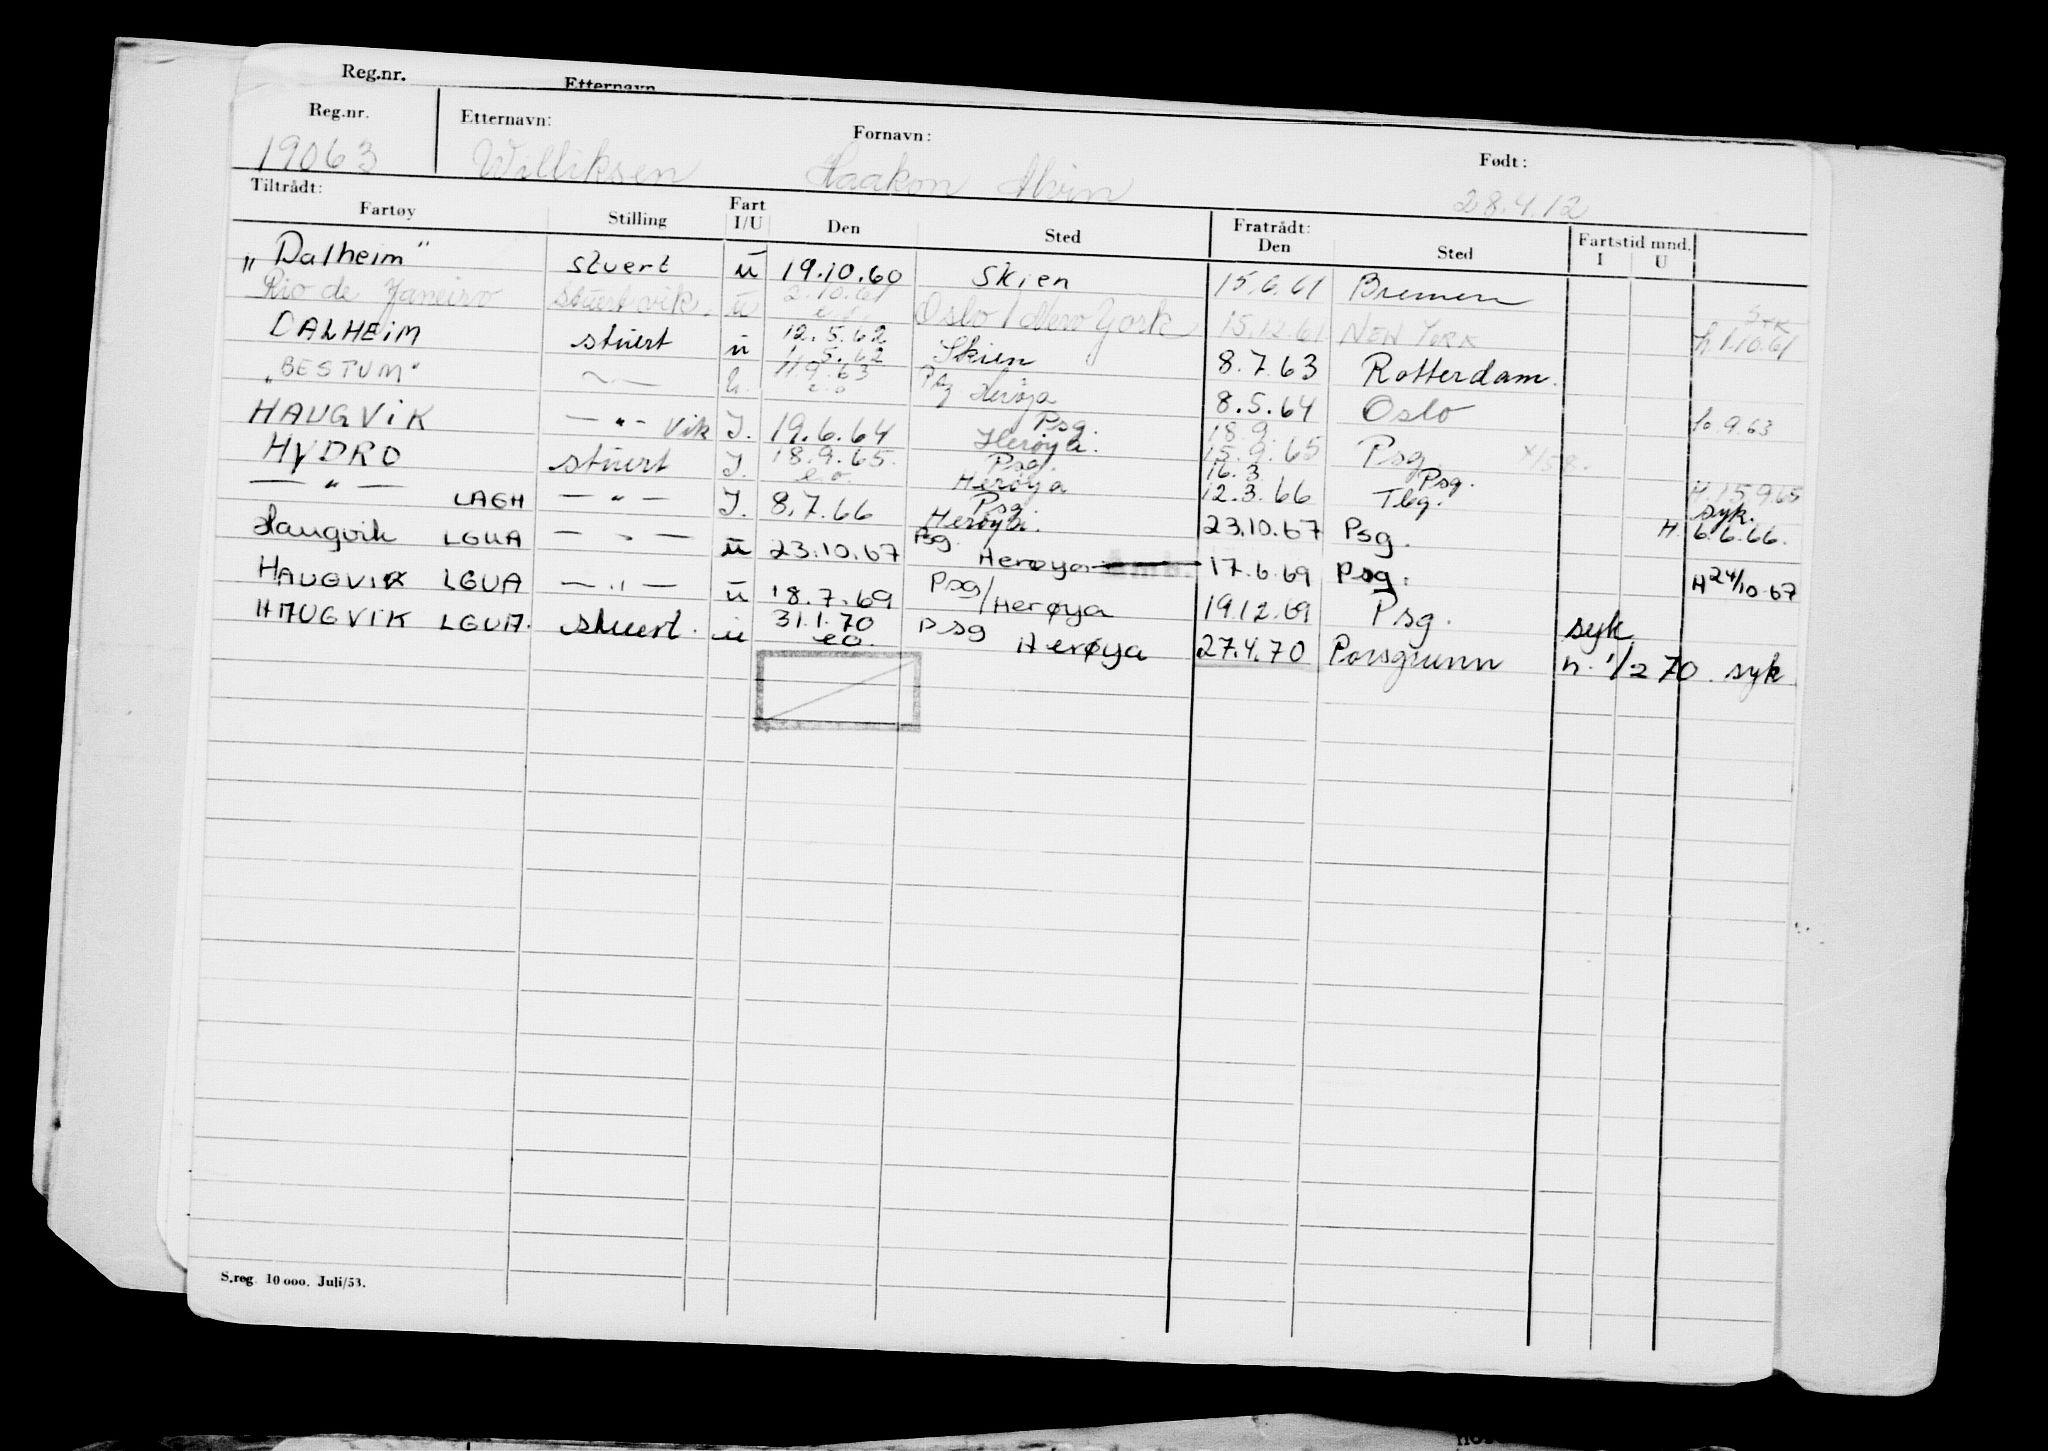 Reg.nr. Etternavn
Reg.nr. Etternavn: Fornavn: Født:
19063 Williksen Haakon Alvin 28.4.12
Tiltrådt: Fratrådt: Fartstid mnd.
Fartøy Stilling Fart I/U Den Sted Den Sted I U
"Dalheim" stuert u 19.10.60 Skien 15.6.61 Bremen
Rio de Janeiro stuert vik. u 2.10.61 e.o. Oslo / New York 15.12.61 NEW YORK syk h 1.10.61
DALHEIM stuert u 12.5.62 11.5.62 Skien 8.7.63 Rotterdam.
"BESTUM" 11.9.63 e.o Psg Herøya 8.5.64 Oslo h. 9.63
HAUGVIK — " — Vik I. 19.6.64 Psg. Herøya. 18.9. 15.9.65 Psg
HYDRO stuert I. 18.9.65. e.o. Psg. Herøya 16.3 12.3.66 Psg. Tbg. H. 15.9.65
— " — LAGH — " — I. 8.7.66 Psg. Herøya. 23.10.67 Psg. syk. H. 6.6.66.
Haugvik LGUA — " — u 23.10.67 Psg. Herøya 17.6.69 Psg. H 24/10.67
HAUGVIK LGUA — " — u 18.7.69 Psg/Herøya 19.12.69 Psg. syk
HAUGVIK LGUA. stuert. u 31.1.70 e.o. Psg Herøya 27.4.70 Porsgrunn h. 1/2 70. syk
S.reg. 10 000. Juli/53.